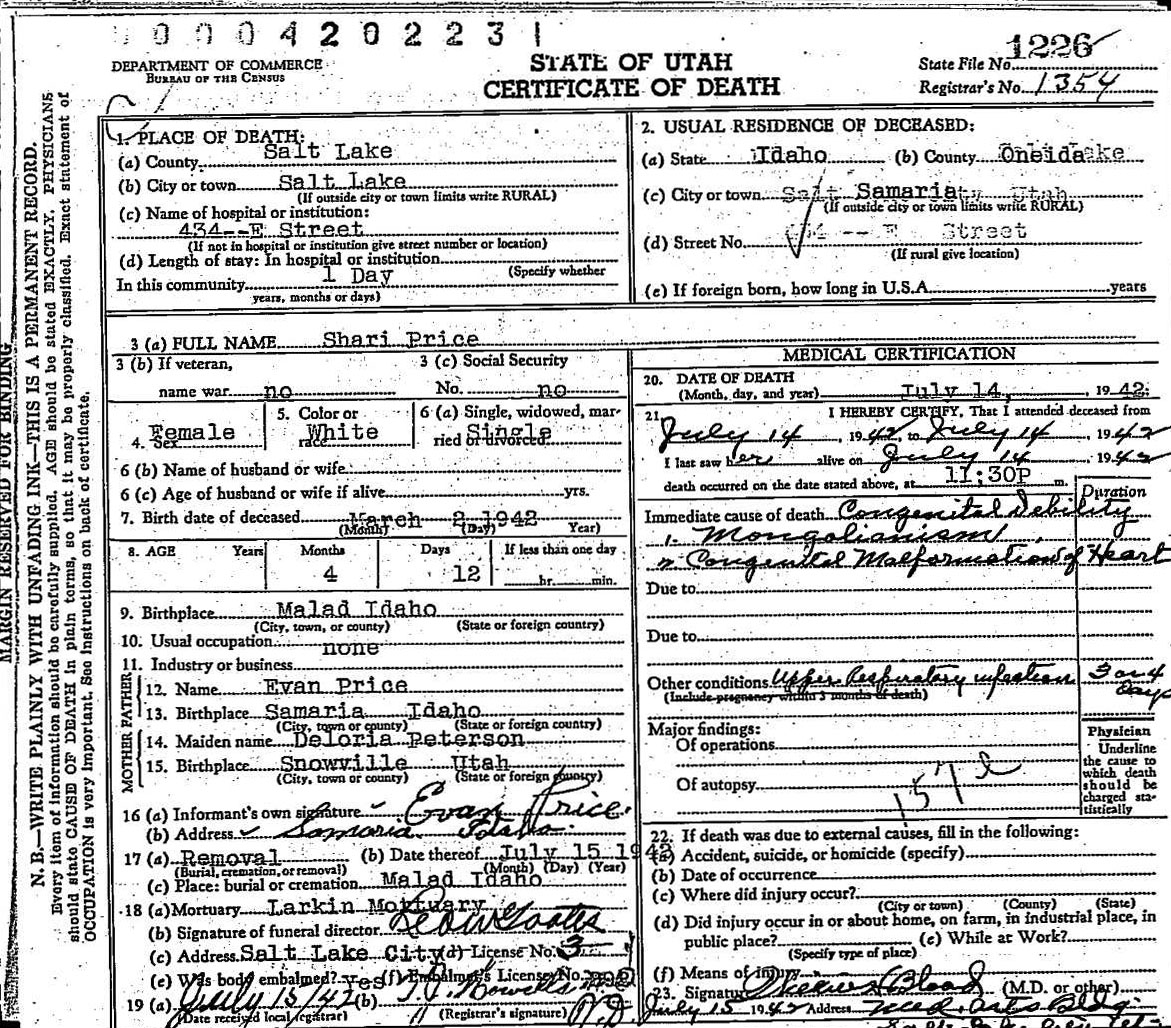 0000420223 1
DEPARTMENT OF COMMERCE
BUREAU OF THE CENSUS
STATE OF UTAH
CERTIFICATE OF DEATH
State File No. 1226
Registrar's No. 1354
MARGIN RESERVED FOR BINDING
N. B.—WRITE PLAINLY WITH UNFADING INK—THIS IS A PERMANENT RECORD.
Every item of information should be carefully supplied. AGE should be stated EXACTLY, PHYSICIANS
should state CAUSE OF DEATH in plain terms, so that it may be properly classified. Exact statement of
OCCUPATION is very important. See instructions on back of certificate.
1. PLACE OF DEATH:
(a) County Salt Lake
(b) City or town Salt Lake
(If outside city or town limits write RURAL)
(c) Name of hospital or institution:
434--E Street
(If not in hospital or institution give street number or location)
(d) Length of stay: In hospital or institution
(Specify whether
In this community 1 Day
years, months or days)
2. USUAL RESIDENCE OF DECEASED:
(a) State Idaho (b) County Oneida
(c) City or town Samaria
(If outside city or town limits write RURAL)
(d) Street No. 434 -- E Street
(If rural give location)
(e) If foreign born, how long in U.S.A. years
3 (a) FULL NAME Shari Price
3 (b) If veteran, 3 (c) Social Security
name war no No. no
4. Sex Female 5. Color or race White 6 (a) Single, widowed, married or divorced Single
6 (b) Name of husband or wife
6 (c) Age of husband or wife if alive yrs.
7. Birth date of deceased March 2 1942
(Month) (Day) Year)
8. AGE Years Months Days If less than one day
4 12 hr. min.
9. Birthplace Malad Idaho
(City, town, or county) (State or foreign country)
10. Usual occupation none
11. Industry or business
FATHER
12. Name Evan Price
13. Birthplace Samaria Idaho
(City, town or county) (State or foreign country)
MOTHER
14. Maiden name Deloria Peterson
15. Birthplace Snowville Utah
(City, town or county) (State or foreign country)
16 (a) Informant's own signature Evan Price
(b) Address Samaria Idaho
17 (a) Removal (b) Date thereof July 15 1942
(Burial, cremation, or removal) (Month) (Day) (Year)
(c) Place: burial or cremation Malad Idaho
18 (a) Mortuary Larkin Mortuary
(b) Signature of funeral director
(c) Address Salt Lake City (d) License No. 3
(e) Was body embalmed? Yes (f) Embalmer's License No.
19 (a) July 15/42 (b)
(Date received local registrar) (Registrar's signature)
MEDICAL CERTIFICATION
20. DATE OF DEATH
(Month, day, and year) July 14, 1942
21. I HEREBY CERTIFY, That I attended deceased from
July 14, 1942, to July 14, 1942
I last saw her alive on July 14, 1942
death occurred on the date stated above, at 11:30P m.
Duration
Immediate cause of death Congenital Debility
1. Mongolianism
2. Congenital Malformation of Heart
Due to
Due to
Other conditions Upper Respiratory infection 3 or 4 days
(Include pregnancy within 3 months of death)
Major findings:
Of operations
Of autopsy
157
Physician
Underline
the cause to
which death
should be
charged sta-
tistically
22. If death was due to external causes, fill in the following:
(a) Accident, suicide, or homicide (specify)
(b) Date of occurrence
(c) Where did injury occur?
(City or town) (County) (State)
(d) Did injury occur in or about home, on farm, in industrial place, in
public place? (e) While at Work?
(Specify type of place)
(f) Means of injury
23. Signature (M.D. or other)
July 15 1942 Address Med. Arts Bldg.